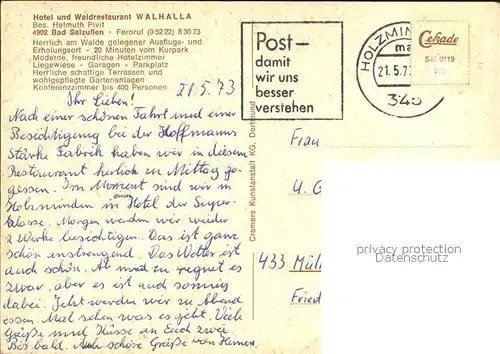 Hotel und Waldrestaurant WALHALLA
Bes. Helmuth Pivit
4902 Bad Salzuflen - Fernruf (05222) 83073
Herrlich am Walde gelegener Ausflugs- und
Erholungsort - 20 Minuten vom Kurpark
Moderne, freundliche Hotelzimmer
Liegewiese - Garagen - Parkplatz
Herrliche schattige Terrassen und
wohlgepflegte Gartenanlagen
Konferenzzimmer bis 400 Personen
21.5.73
Ihr Lieben!
Nach einer schönen Fahrt und einer
Besichtigung bei der Hoffmanns
Stärke Fabrik haben wir in diesem
Restaurant herlich zu Mittag ge-
gessen. Im Moment sind wir in
Holzminden im Hotel der Super-
klasse. Morgen werden wir wieder
2 Werke besichtigen. Das ist ganz
schön anstrengend. Das Wetter ist
auch schön. Ab und zu regnet es
zwar, aber es ist auch sonnig
dabei. Jetzt werden wir zu Abend
essen. Mal sehen was es gibt. Viele
Grüße und Küsse an Euch zwei
Bis bald. Auch schöne Grüße von
Cramers Kunstanstalt KG, Dortmund
Post-
damit
wir uns
besser
verstehen
HOLZMIN
21.5.73
345
Cekade
Frau
U. G
433 Mül
Fried
privacy protection
Datenschutz